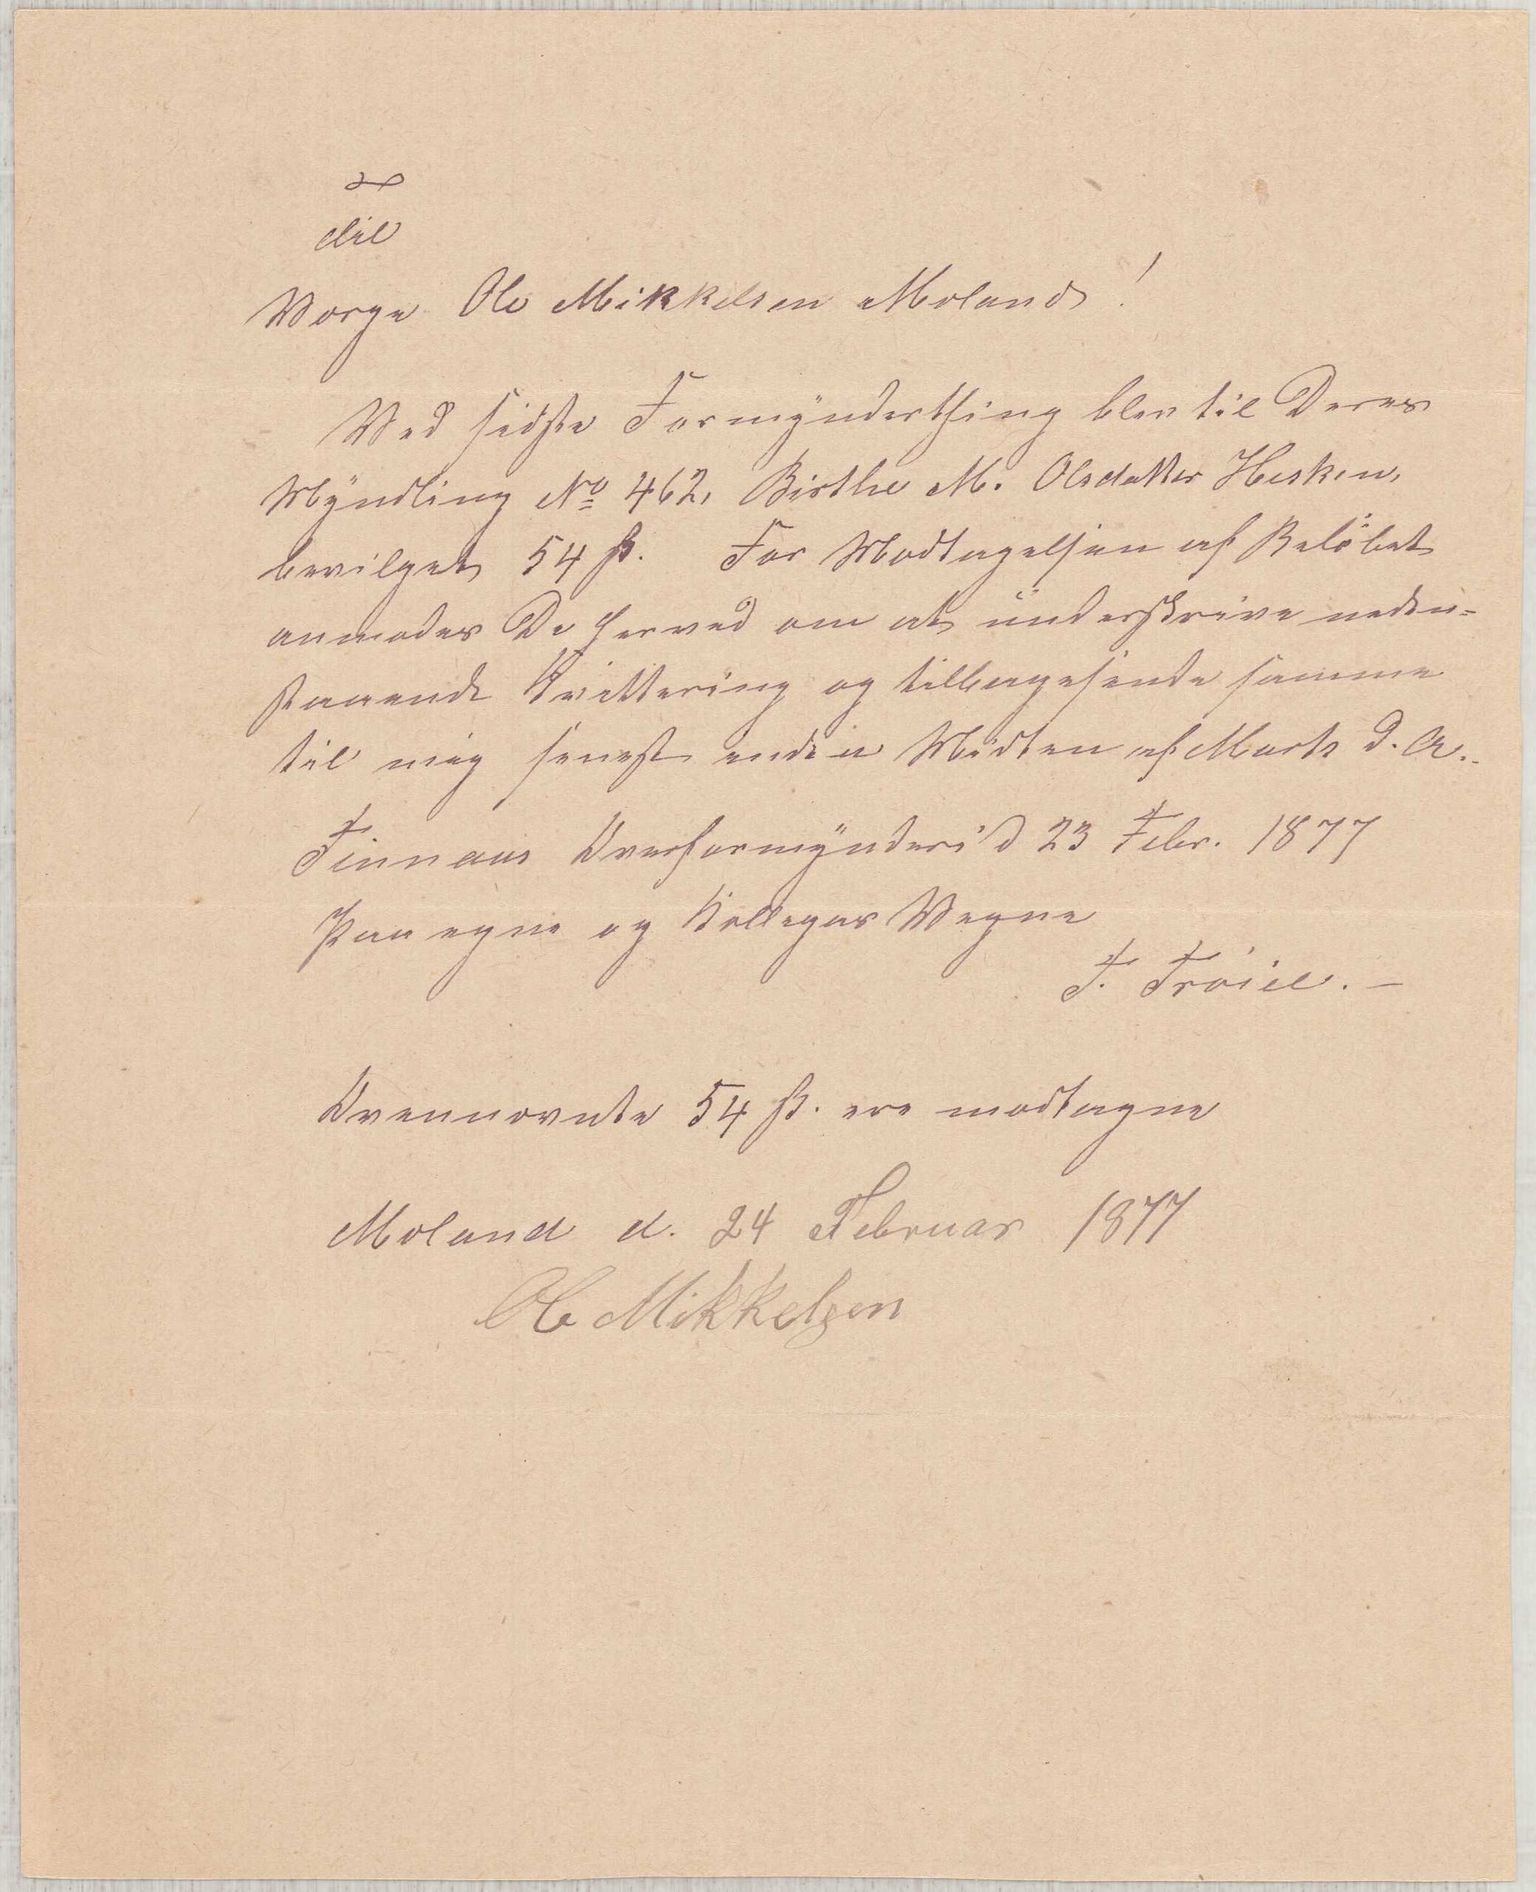 Til
Værge Ole Mikkelsen Moland!
Ved sidste Formynderthing blev til Deres
Myndling No 462, Birthe M. Olsdatter Hesken,
bevilget 54 ß. For Modtagelsen af Beløbet
anmodes De herved om at underskrive neden=
staaende Kvittering og tilbagesende samme
til mig senest inden Midten af Marts d. A.
Finnaas Overformynderi d 23 Febr. 1877
Paa egne og Kollegas Vegne
F. Frøiel. –
Ovennævnte 54 ß. ere modtagne
Moland d. 24 Februar 1877
Ole Mikkelsen